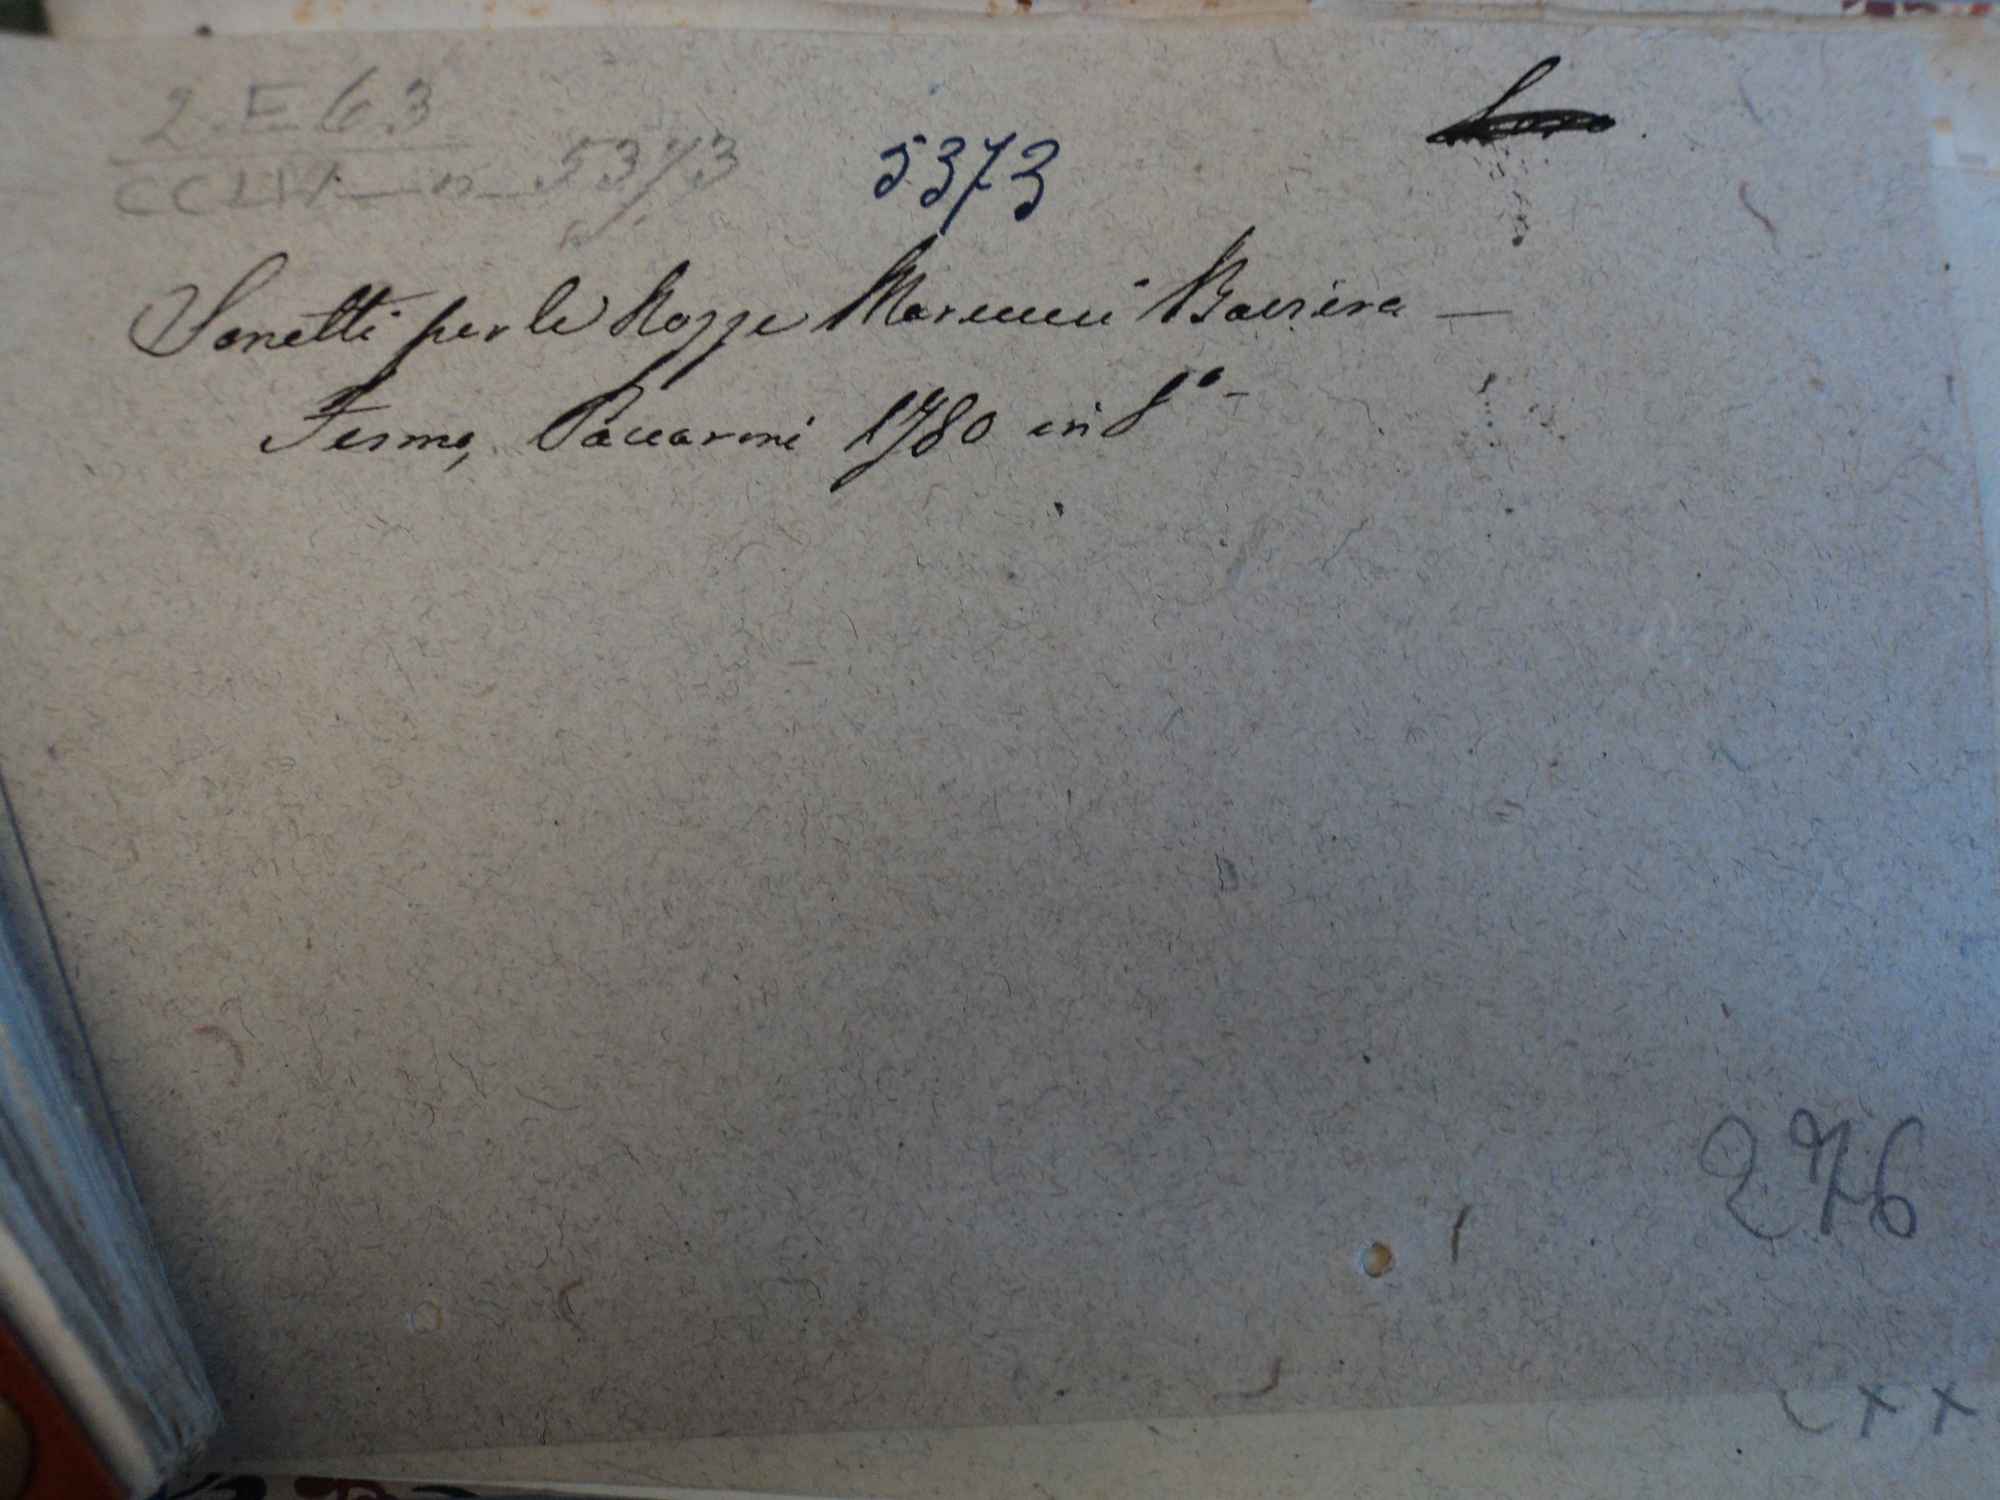 2. E 63
5373
5373
Sonetti per le Nozze Marcucci Baviera —
Fermo, Paccaroni 1780 in 8° -
276